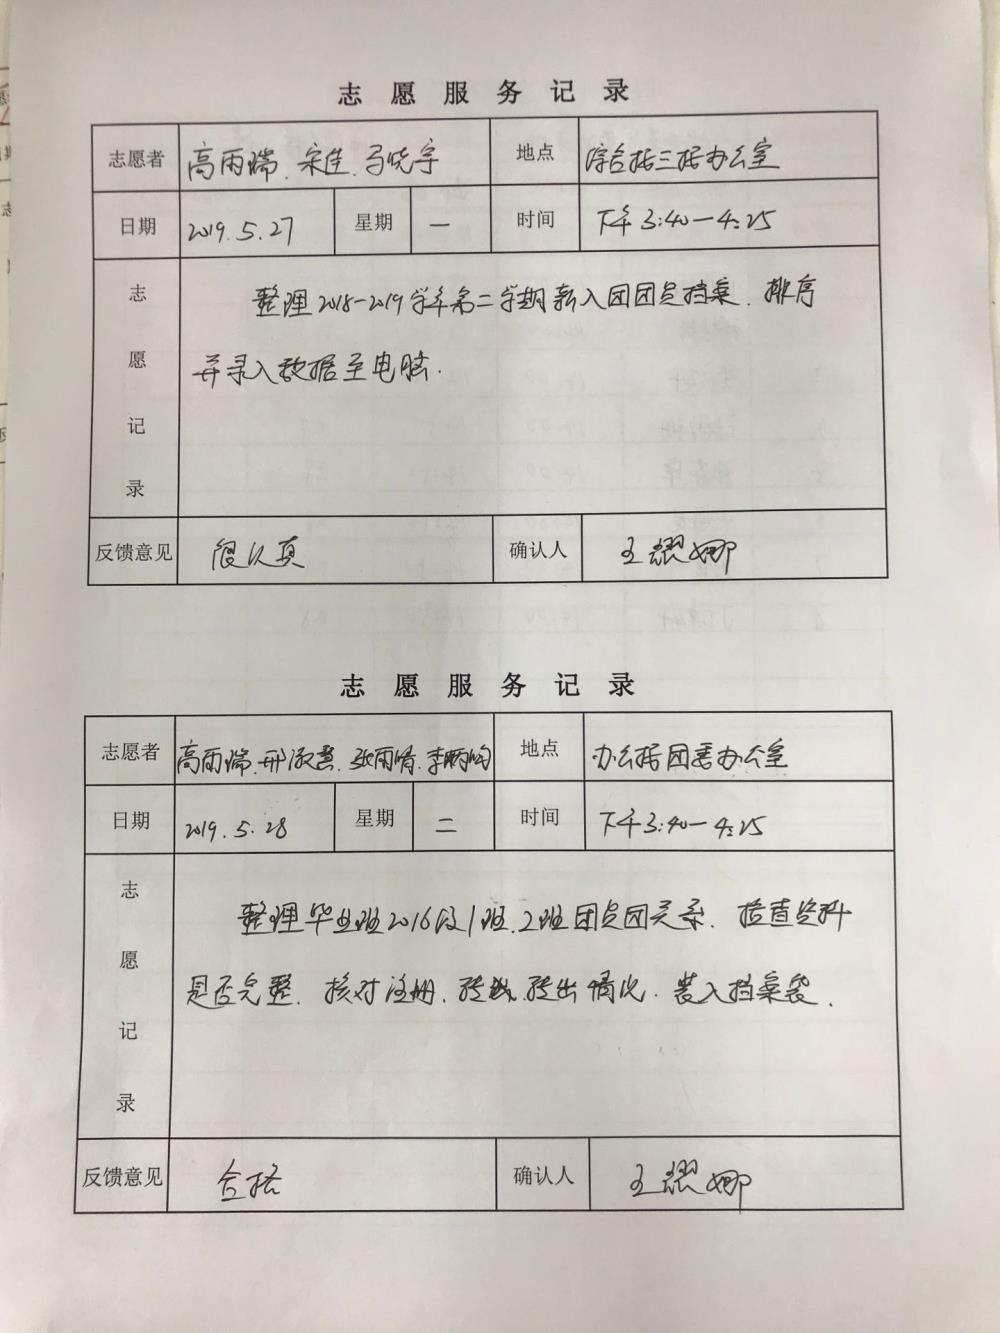 志愿服务记录
志愿者 高雨瑞、宋佳、马晓宇 地点 综合楼三楼办公室
日期 2019.5.27 星期 一 时间 下午3:40-4:25
志愿记录
整理2018-2019学年第二学期新入团团员档案、排序
并录入数据至电脑.
反馈意见 很认真 确认人 王耀娜
志愿服务记录
志愿者 高雨瑞、邢淑慧、张雨情、李炳均 地点 办公楼团委办公室
日期 2019.5.28 星期 二 时间 下午3:40-4:25
志愿记录
整理毕业班2016级1班、2班团员团关系、检查资料
是否完整、核对注册、转出情况、装入档案袋.
反馈意见 合格 确认人 王耀娜